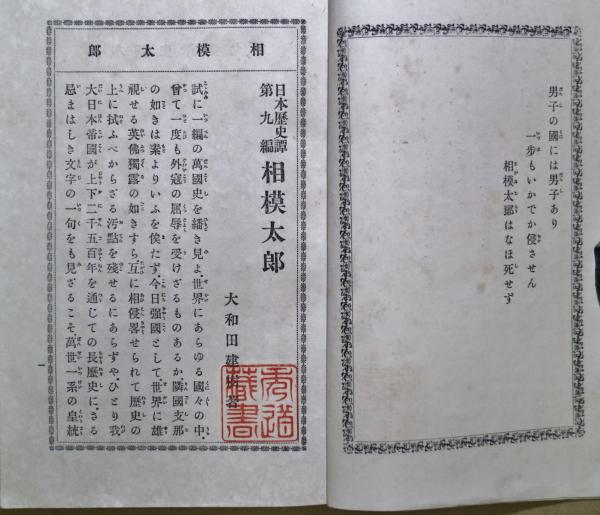 男子の國には男子あり
一歩もいかでか侵させん
相模太郎はなほ死せず
相模太郎
日本歴史譚
第九編
相模太郎
大和田建樹著
試に一編の萬國史を繙き見よ、世界にあらゆる國々の中、
曾て一度も外寇の屈辱を受けざるものあるか隣國支那
の如きは素よりいふを俟たず、今日强國として世界に雄
視せる英佛獨露の如きすら、互に相侵畧せられて歴史の
上に拭ふべからざる汚點を殘せるにあらずや、ひとり我
大日本帝國が上下二千五百年を通じての長歴史に、さる
忌まはしき文字の一句をも見ざるこそ萬世一系の皇統
一
道
藏書